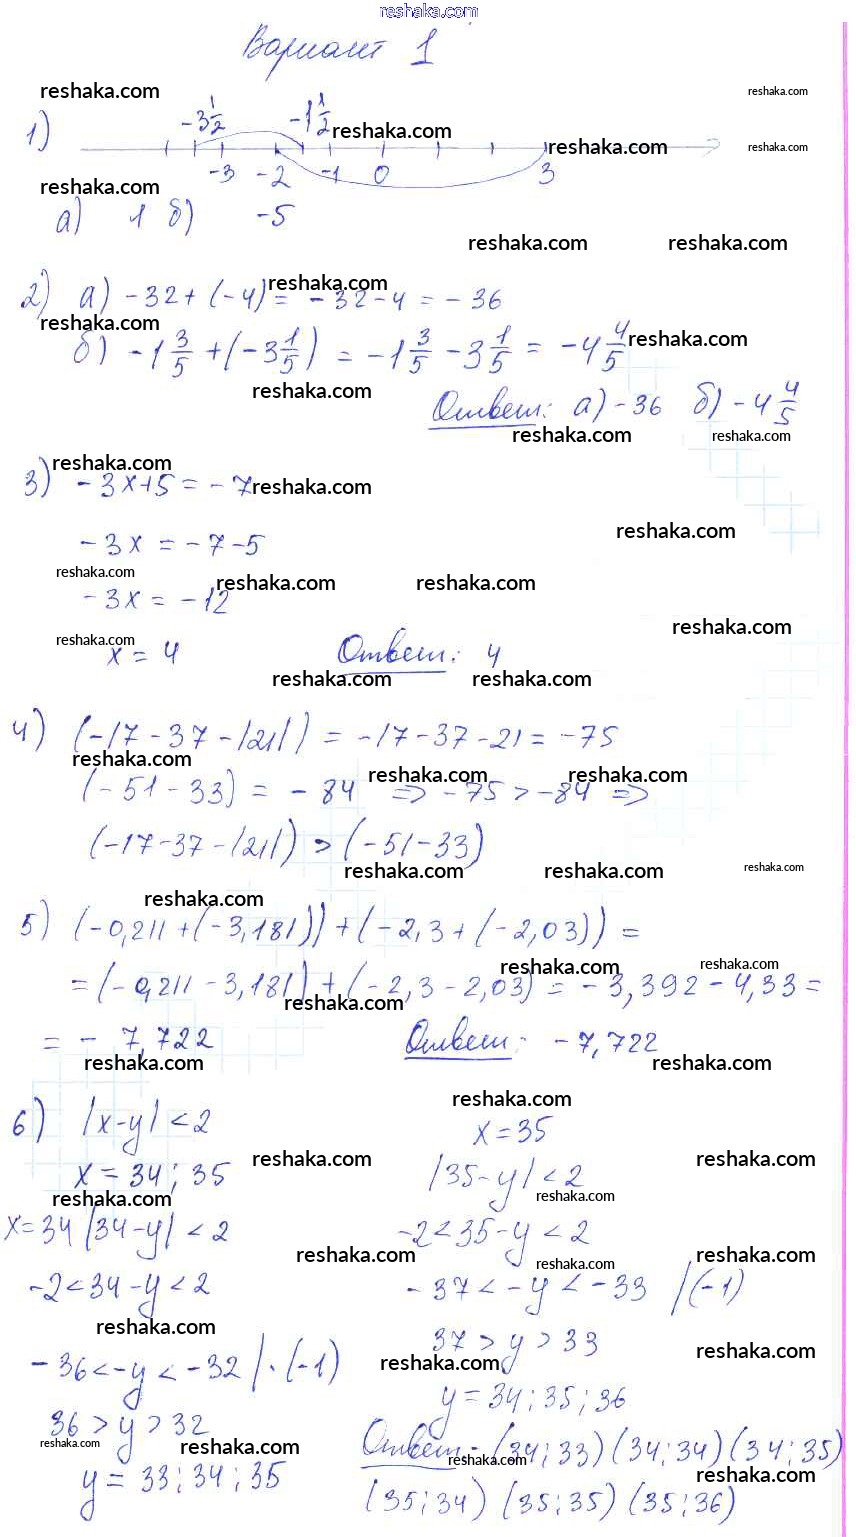 reshaka.com
Вариант 1
reshaka.com reshaka.com
1) -3 1/2 -1 1/2 reshaka.com reshaka.com reshaka.com
-3 -2 -1 0 3
reshaka.com
а) 1 б) -5
reshaka.com reshaka.com
2) а) -32 + (-4) = -32 - 4 = -36
reshaka.com
reshaka.com
б) -1 3/5 + (-3 1/5) = -1 3/5 - 3 1/5 = -4 4/5 reshaka.com
reshaka.com
Ответ: а) -36 б) -4 4/5
reshaka.com reshaka.com
reshaka.com
3) -3x+5 = -7 reshaka.com
reshaka.com
-3x = -7-5
reshaka.com reshaka.com reshaka.com
-3x = -12
reshaka.com reshaka.com
x = 4 Ответ: 4
reshaka.com reshaka.com reshaka.com
4) (-17-37-|21|) = -17-37-21 = -75
reshaka.com
reshaka.com reshaka.com
(-51-33) = -84 => -75 > -84 =>
(-17-37-|21|) > (-51-33)
reshaka.com reshaka.com reshaka.com
reshaka.com
5) (-0,211 + (-3,181)) + (-2,3 + (-2,03)) =
reshaka.com reshaka.com
= (-0,211 - 3,181) + (-2,3 - 2,03) = -3,392 - 4,33 =
reshaka.com
= -7,722 Ответ: -7,722
reshaka.com reshaka.com
reshaka.com
6) |x-y| < 2 x = 35
x = 34; 35 reshaka.com |35-y| < 2 reshaka.com
reshaka.com reshaka.com
x = 34 |34-y| < 2 -2 < 35-y < 2
reshaka.com reshaka.com reshaka.com
-2 < 34-y < 2 -37 < -y < -33 |(-1)
reshaka.com
37 > y > 33 reshaka.com
-36 < -y < -32 | · (-1) reshaka.com
y = 34; 35; 36
36 > y > 32
reshaka.com reshaka.com reshaka.com
Ответ: (34; 33) (34; 34) (34; 35)
y = 33; 34; 35 reshaka.com
(35; 34) (35; 35) (35; 36)